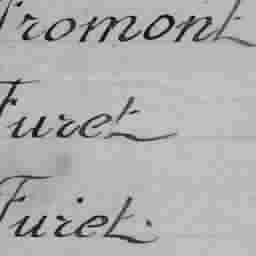 Fromont
Furet
Furet.